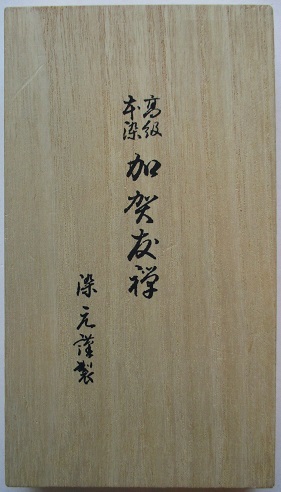 高級
本染
加賀友禅
染元謹製